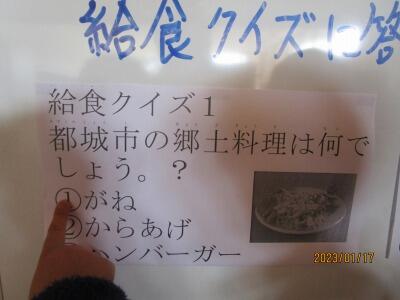 給食クイズに答
給食クイズ１
都城市の郷土料理は何で
しょう。？
①がね
②からあげ
ハンバーガー
2023/01/17